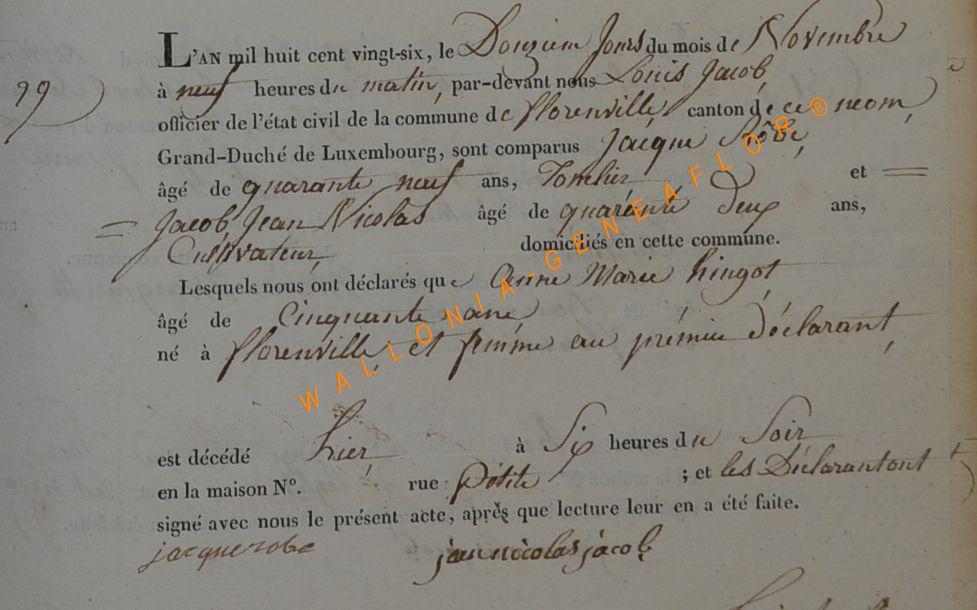 L'AN mil huit cent vingt-six, le Douzieme Jours du mois de Novembre
99
à neuf heures du matin, par-devant nous Louis Jacob,
officier de l'état civil de la commune de florenville, canton de ce nom,
Grand-Duché de Luxembourg, sont comparus Jacque Robe,
âgé de quarante neuf ans, et
Jacob Jean Nicolas âgé de quarante deux ans,
Cultivateur, domiciliés en cette commune.
Lesquels nous ont déclarés que Anne Marie hingot
âgé de Cinquante ans
né à florenville, et femme au prémier déclarant,
est décédé hier, à Six heures du Soir
en la maison N°. rue Pétite ; et les Déclarant ont
signé avec nous le présent acte, après que lecture leur en a été faite.
jacque robe jean nicolas jacob
WALLONIA-GENEAFLOR®